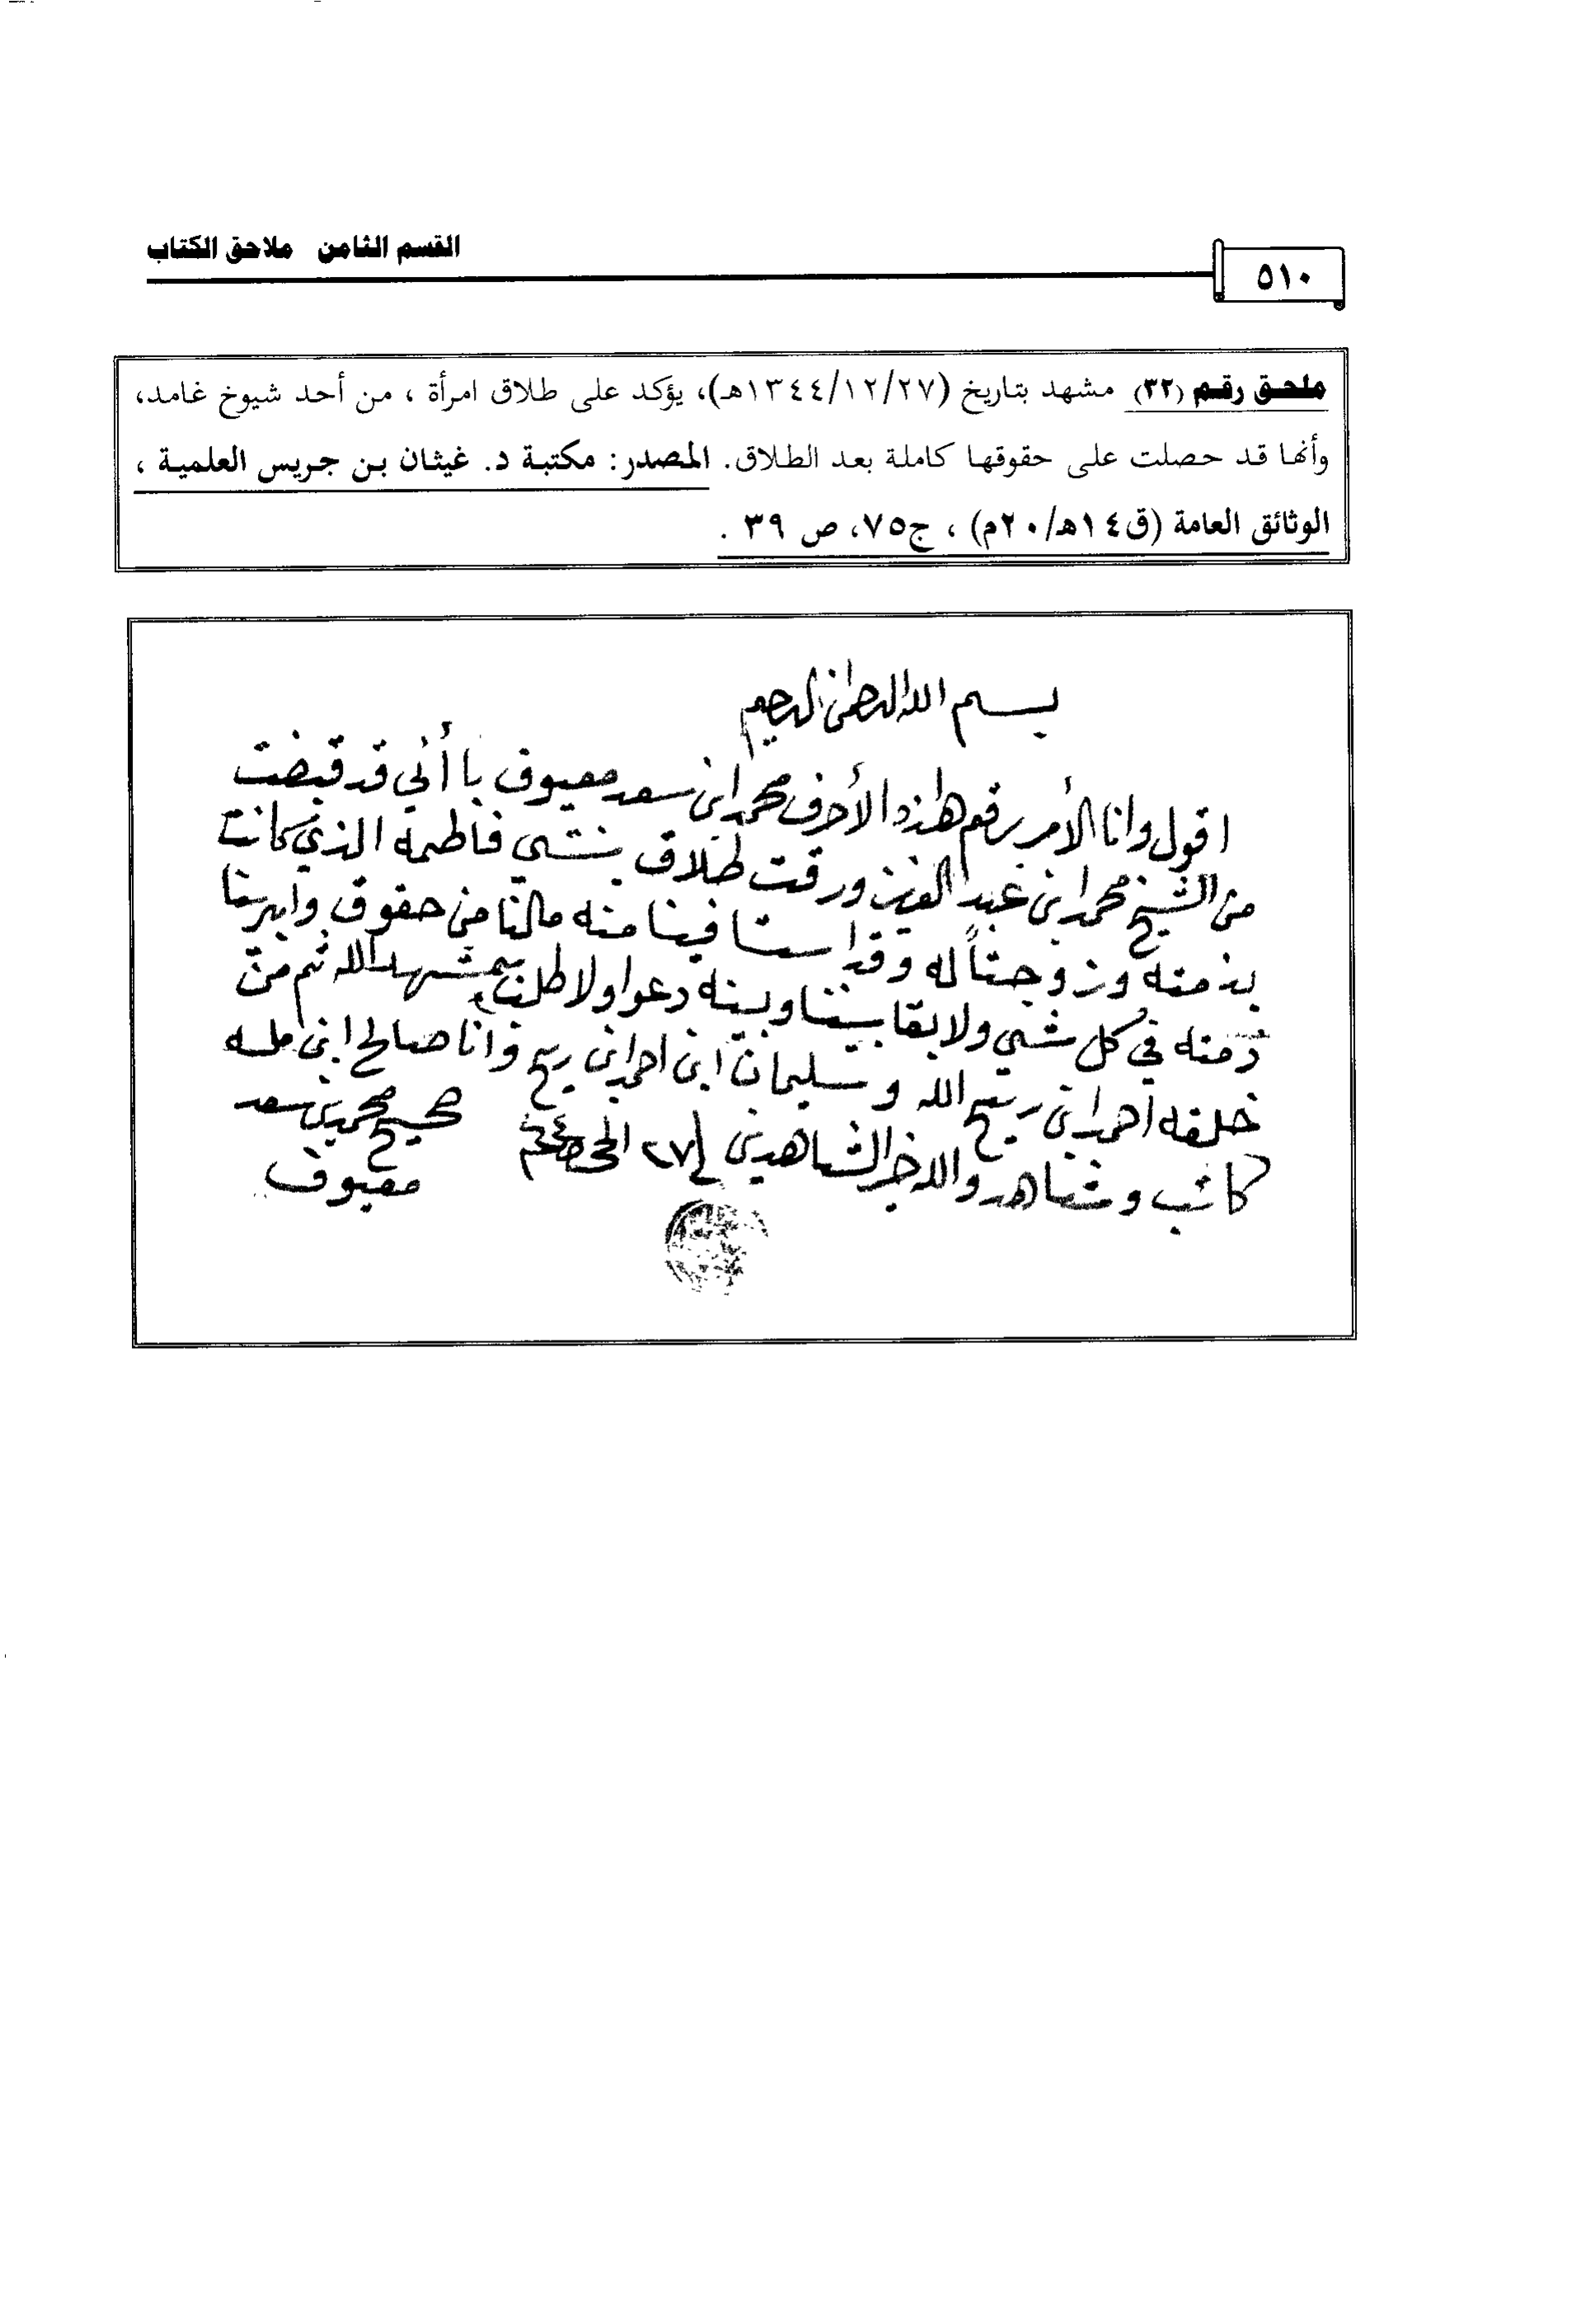 القسم الثامن   ملاحق الكتاب
٥١٠
ملحق رقم (٣٢) مشهد بتاريخ (١٣٤٤/١٢/٢٧هـ)، يؤكد على طلاق امرأة ، من أحد شيوخ غامد،
وأنها قد حصلت على حقوقها كاملة بعد الطلاق. المصدر: مكتبة د. غيثان بن جريس العلمية ،
الوثائق العامة (ق١٤هـ/٢٠م) ، ج٧٥، ص ٣٩ .
بسم الله الرحمن الرحيم
اقول وانا الأمر برقم هاذه الأحرف محمد ابن سعد معيوف بأأني قد قبضت
من الشيخ محمد ابن عبد العزيز ورقت طلاق بنتي فاطمه الذي كانت
بذمته وزوجتاً له وقد استافينا منه مالنا من حقوق وابرينا
ذمته في كل شي ولا بقا بيننا وبينه دعوا ولا طلب شهد الله ثم من
خلقه احمد ابن ربيح الله وسليمان ابن احمد ابن ربيح وانا صالح ابن
كاتب وشاهد والله خير الشاهدين في ٢٧ الحجه ٤٤
صحيح محمد بن سعد
معيوف